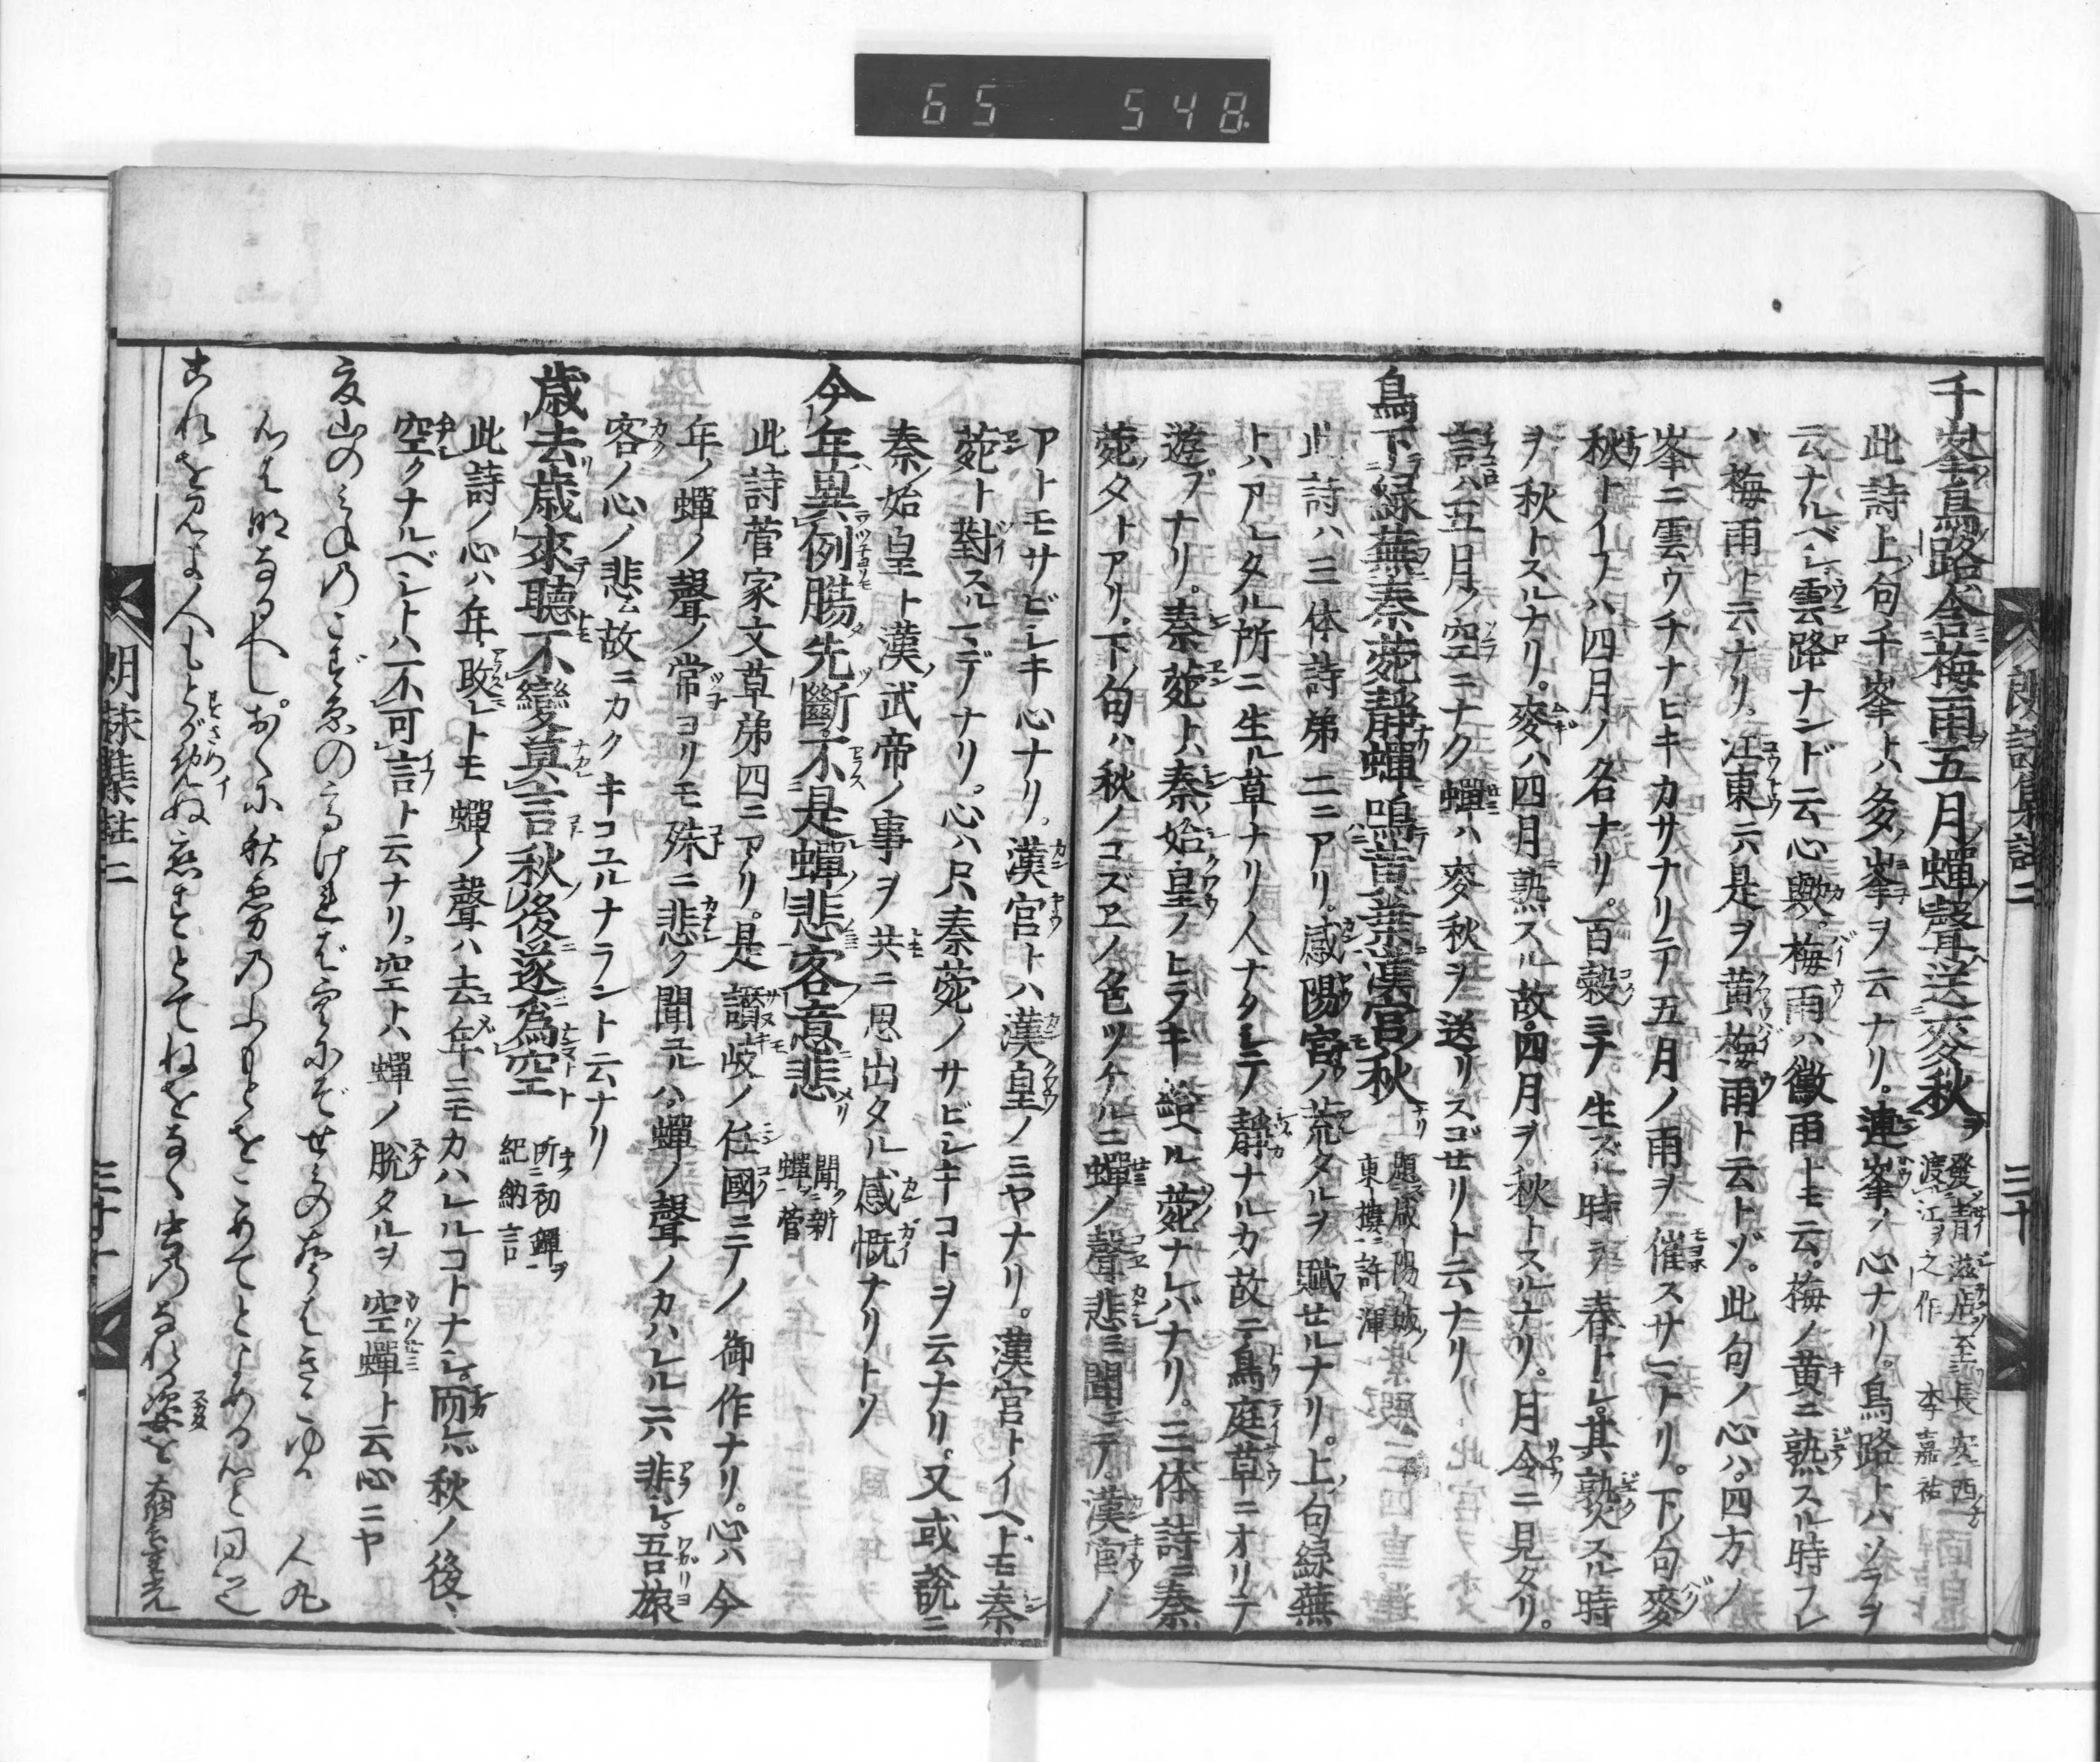 65 548
朗詠集註二
三十
千峯鳥路含梅雨五月蟬聲送麥秋 發青滋店至長安西渡江之作 李嘉祐
此詩上句千峯トハ多ノ峯ヲ云ナリ。連峯ノ心ナリ。鳥路トハソラヲ
云ナルベシ雲路ナンド云心歟。梅雨ハ黴雨トモ云。梅ノ黄ニ熟スル時フレ
ハ梅雨ト云ナリ。江東ニハ是ヲ黄梅雨ト云トゾ。此句ノ心ハ。四方ノ
峯ニ雲ウチナビキカサナリテ五月ノ雨ヲ催スサマトリ。下ノ句麥
秋トイフハ四月ノ名ナリ。百穀ミナ生ズル時ヲ春トシ其熟スル時
ヲ秋トスルナリ。麥ハ四月熟スル故四月ヲ秋トスルナリ。月令ニ見タリ。
言ハ五月ノ空ニナク蟬ハ麥秋ヲ送リスゴセリト云ナリ
鳥下緑蕪秦苑靜蟬鳴黄葉漢宮秋 題咸陽城東樓 許渾
此詩ハ三体詩第二ニアリ。咸陽宮ノ荒タルヲ賦セルナリ。上句緑蕪
トハアレタル所ニ生ル草ナリ人ナクシテ靜ナルカ故ニ鳥庭草ニオリテ
遊ブナリ。秦苑トハ秦ノ始皇ノヒラキ給ヘル苑ナレバナリ。三体詩ニ秦
苑夕トアリ。下ノ句ハ秋ノコズヱノ色ツケルニ蟬ノ聲悲ミ聞ニテ。漢宮ノ
アトモサビシキ心ナリ。漢宮トハ漢皇ノミヤナリ。漢宮トイヘドモ秦
苑ト對スルマデナリ。心ハ只秦苑ノサビシキコトヲ云ナリ。又或説ニ
秦ノ始皇ト漢ノ武帝ノ事ヲ共ニ思出タル感慨ナリトソ
今年異例腸先斷不是蟬悲客意悲 聞新蟬 菅
此詩菅家文草第四ニアリ。是讃岐ノ任國ニテノ御作ナリ。心ハ今
年ノ蟬ノ聲ノ常ヨリモ殊ニ悲ク聞ユルハ。蟬ノ聲ノカハレルニハ非レ吾旅
客ノ心ノ悲シム故ニカクキコユルナラント云ナリ
歳去歳來聽不變莫言秋後遂爲空 所初蟬 紀納言
此詩ノ心ハ年改レトモ蟬ノ聲ハ去年ニモカハレルコトナシ。而レバ秋ノ後ハ
空クナルベシトハ不可言ト云ナリ。空トハ蟬ノ脱タルヲ空蟬ト云心ニヤ
夏山のみねのこずゑのたかければ空にぞせみの聲はきこゆる 人丸
心は明なるべし。
これをみよ人もとがめぬ恋すとてねをなく虫のなれる姿を 大納言重光
朗詠集註二